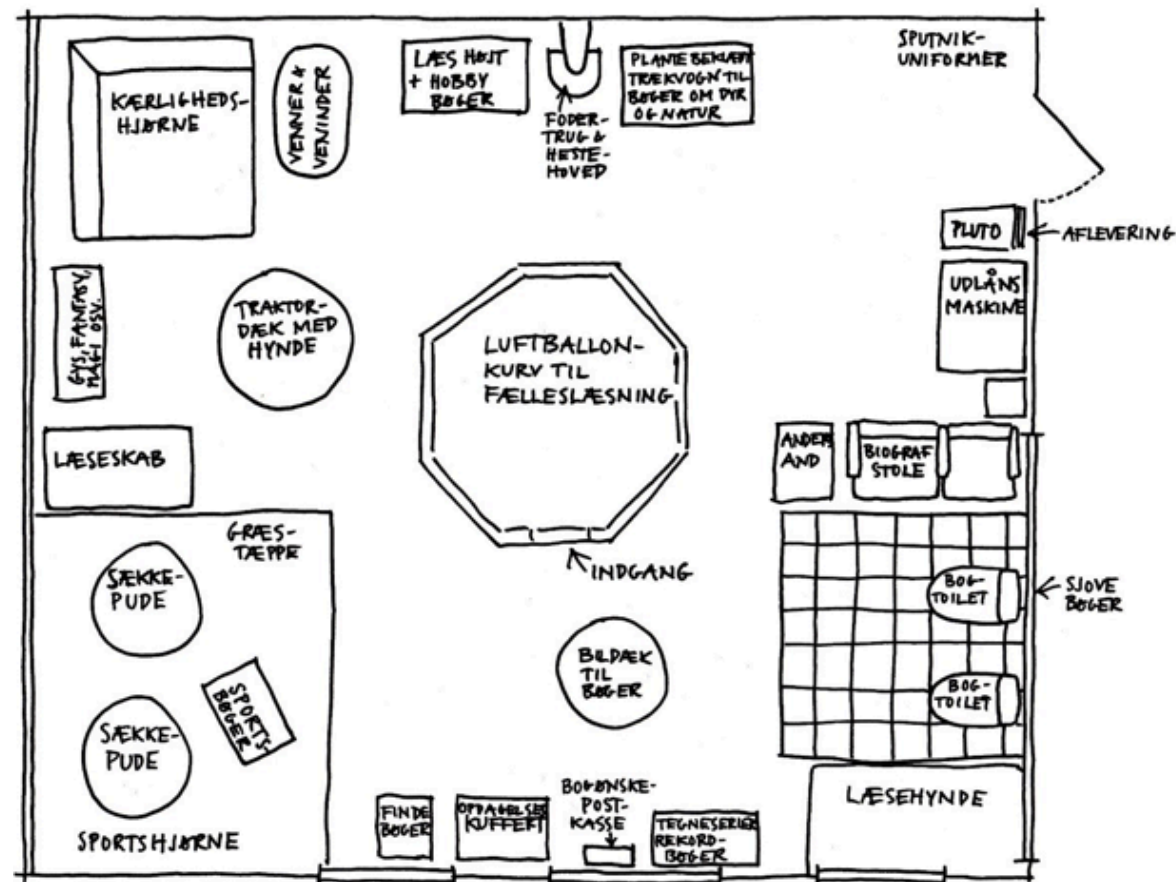 KÆRLIGHEDS-
HJØRNE
VENNER &
VENINDER
LÆS HØJT
+ HOBBY
BØGER
FODER-
TRUG &
HESTE-
HOVED
PLANTEBEKLÆDT
TRÆKVOGN TIL
BØGER OM DYR
OG NATUR
SPUTNIK-
UNIFORMER
PLUTO
AFLEVERING
UDLÅNS
MASKINE
GYS, FANTASY,
MAGI OSV.
TRAKTOR-
DÆK MED
HYNDE
LUFTBALLON-
KURV TIL
FÆLLESLÆSNING
INDGANG
ANDERS
AND
BIOGRAF
STOLE
LÆSESKAB
GRÆS-
TÆPPE
SÆKKE-
PUDE
SPORTS-
BØGER
SÆKKE-
PUDE
SPORTSHJØRNE
BILDÆK
TIL
BØGER
BOG-
TOILET
SJOVE
BØGER
BOG-
TOILET
FINDE
BØGER
OPDAGELSES
KUFFERT
BOGØNSKE-
POST-
KASSE
TEGNESERIER
REKORD-
BØGER
LÆSEHYNDE